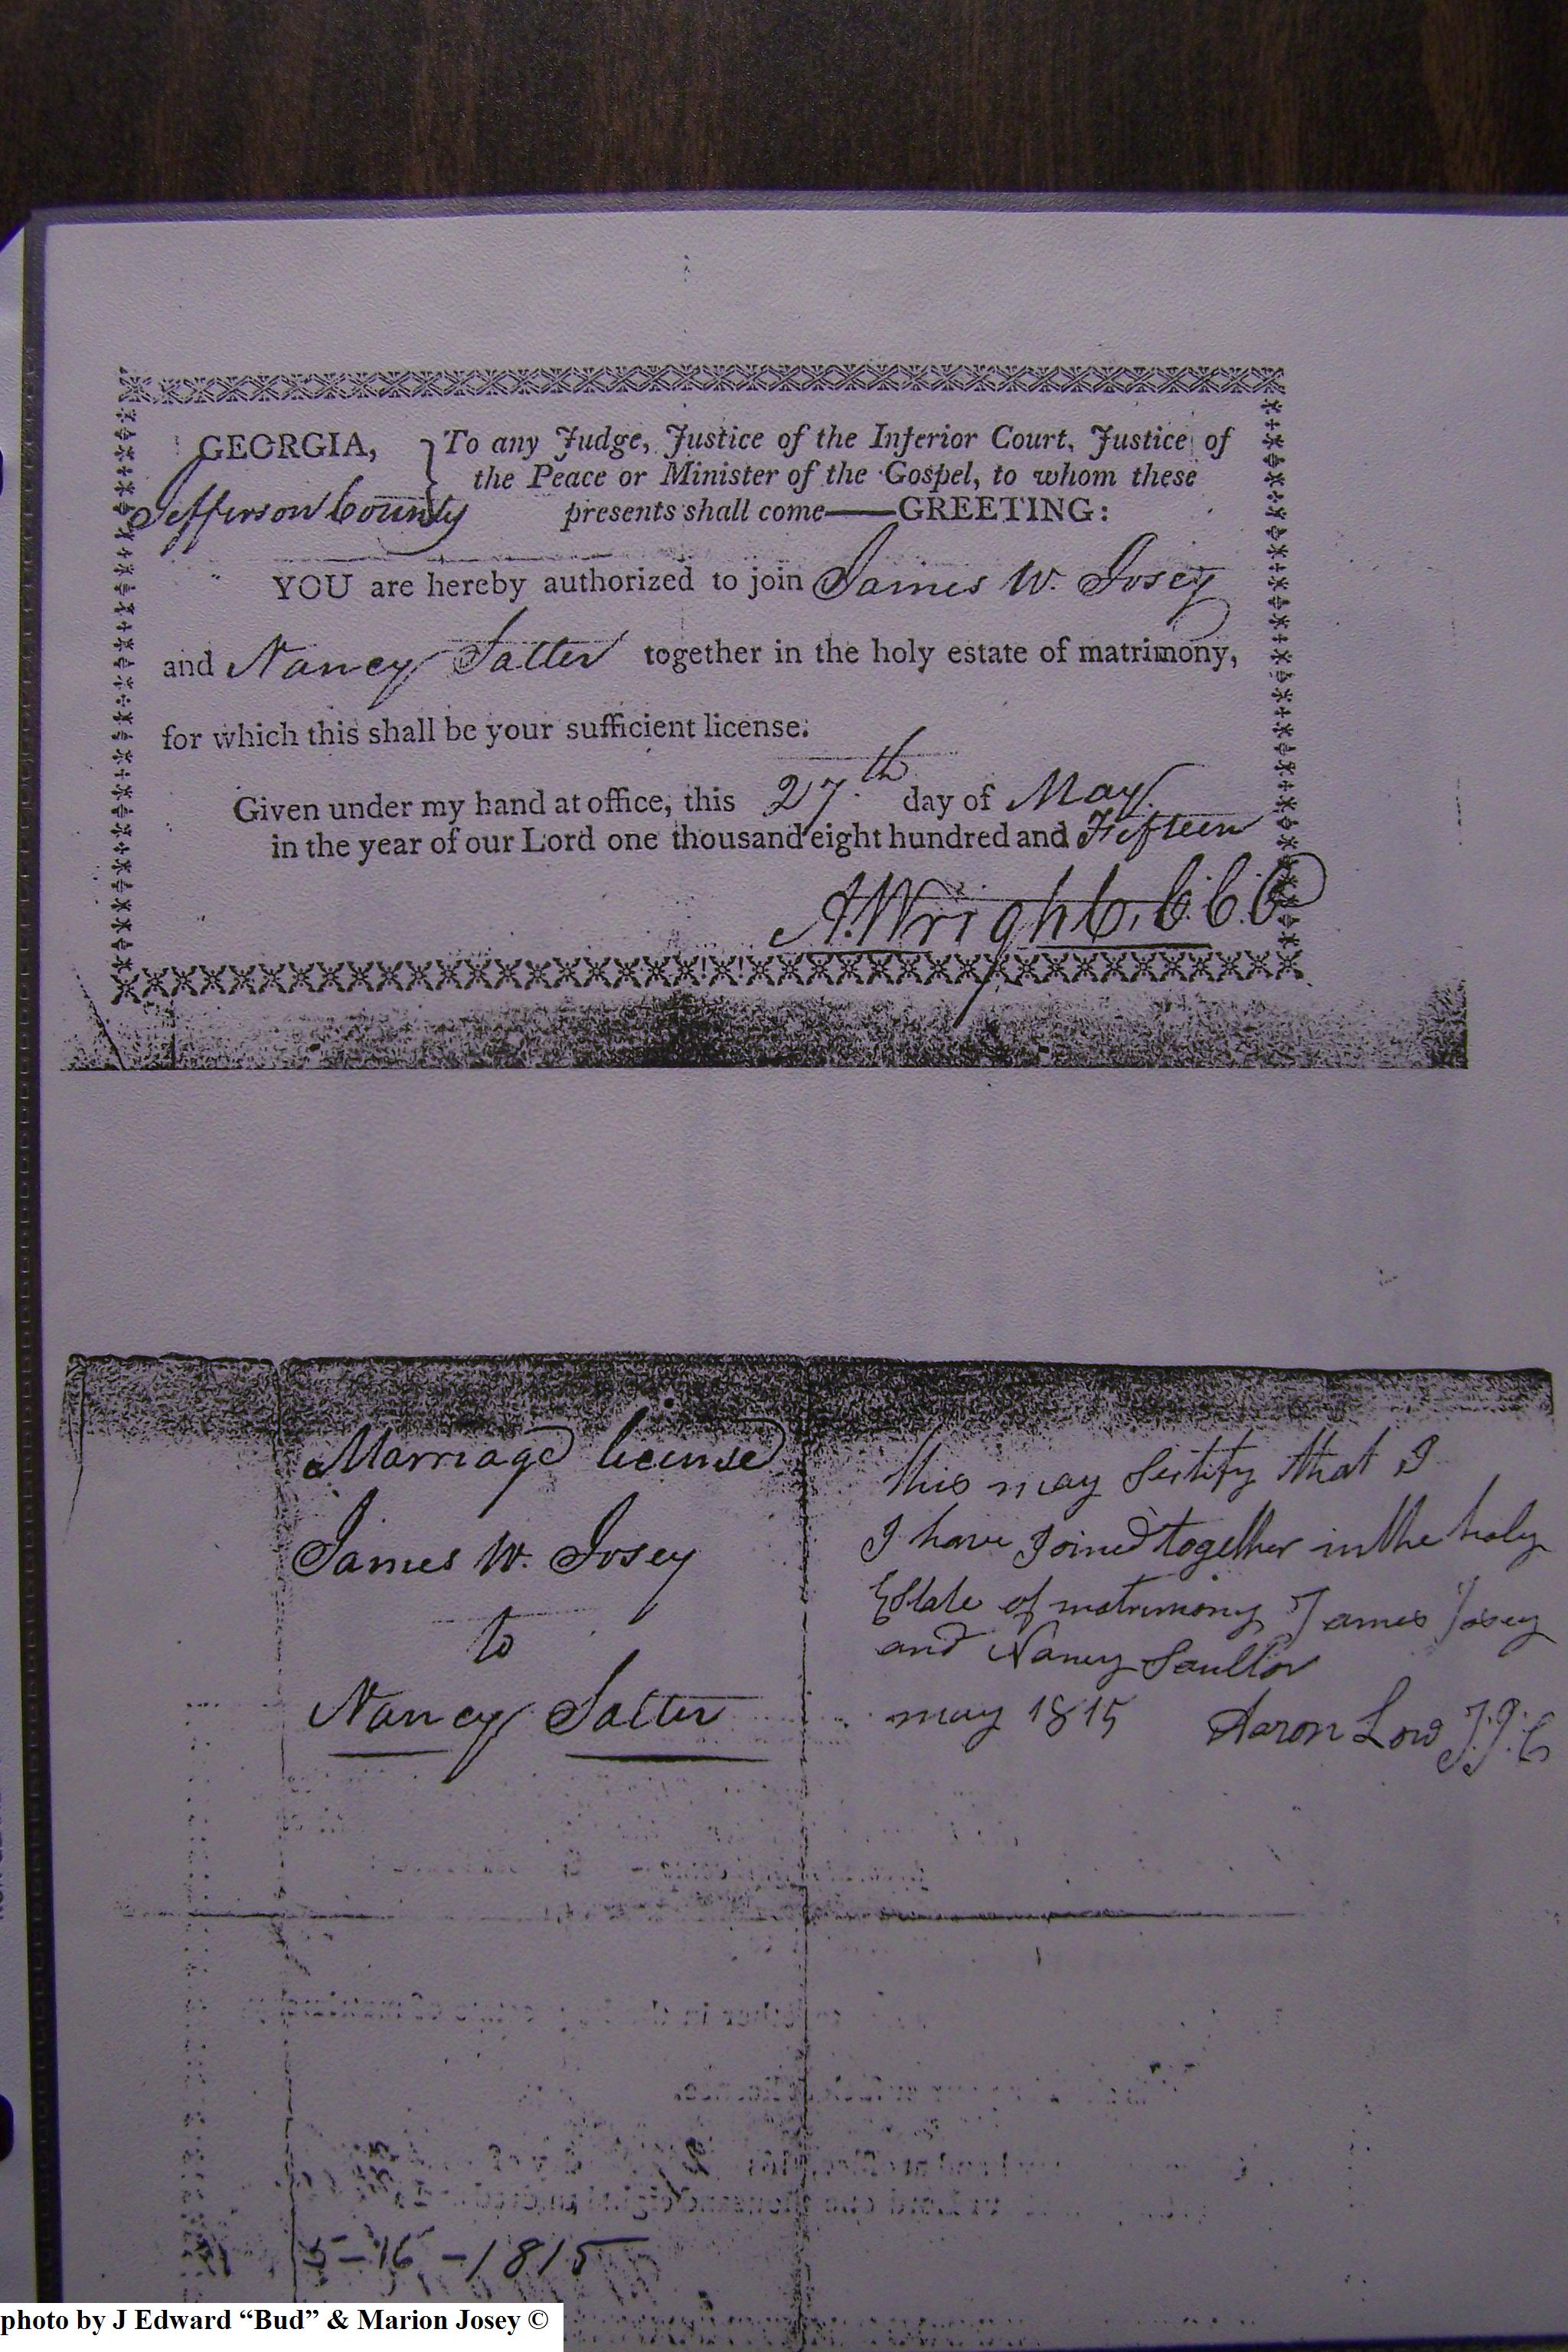 GEORGIA,
Jefferson County
To any Judge, Justice of the Inferior Court, Justice of
the Peace or Minister of the Gospel, to whom these
presents shall come——GREETING:
YOU are hereby authorized to join James W. Josey
and Nancy Salter together in the holy estate of matrimony,
for which this shall be your sufficient license.
Given under my hand at office, this 27th day of May
in the year of our Lord one thousand eight hundred and Fifteen
A. Wright, C.C.O
Marriage license
James W. Josey
to
Nancy Salter
this may Sertify that I
I have Joined together in the holy
Estate of matrimony James Josey
and Nancy Saultor
may 1815 Aaron Low J.J.C
5-16-1815
photo by J Edward “Bud” & Marion Josey ©